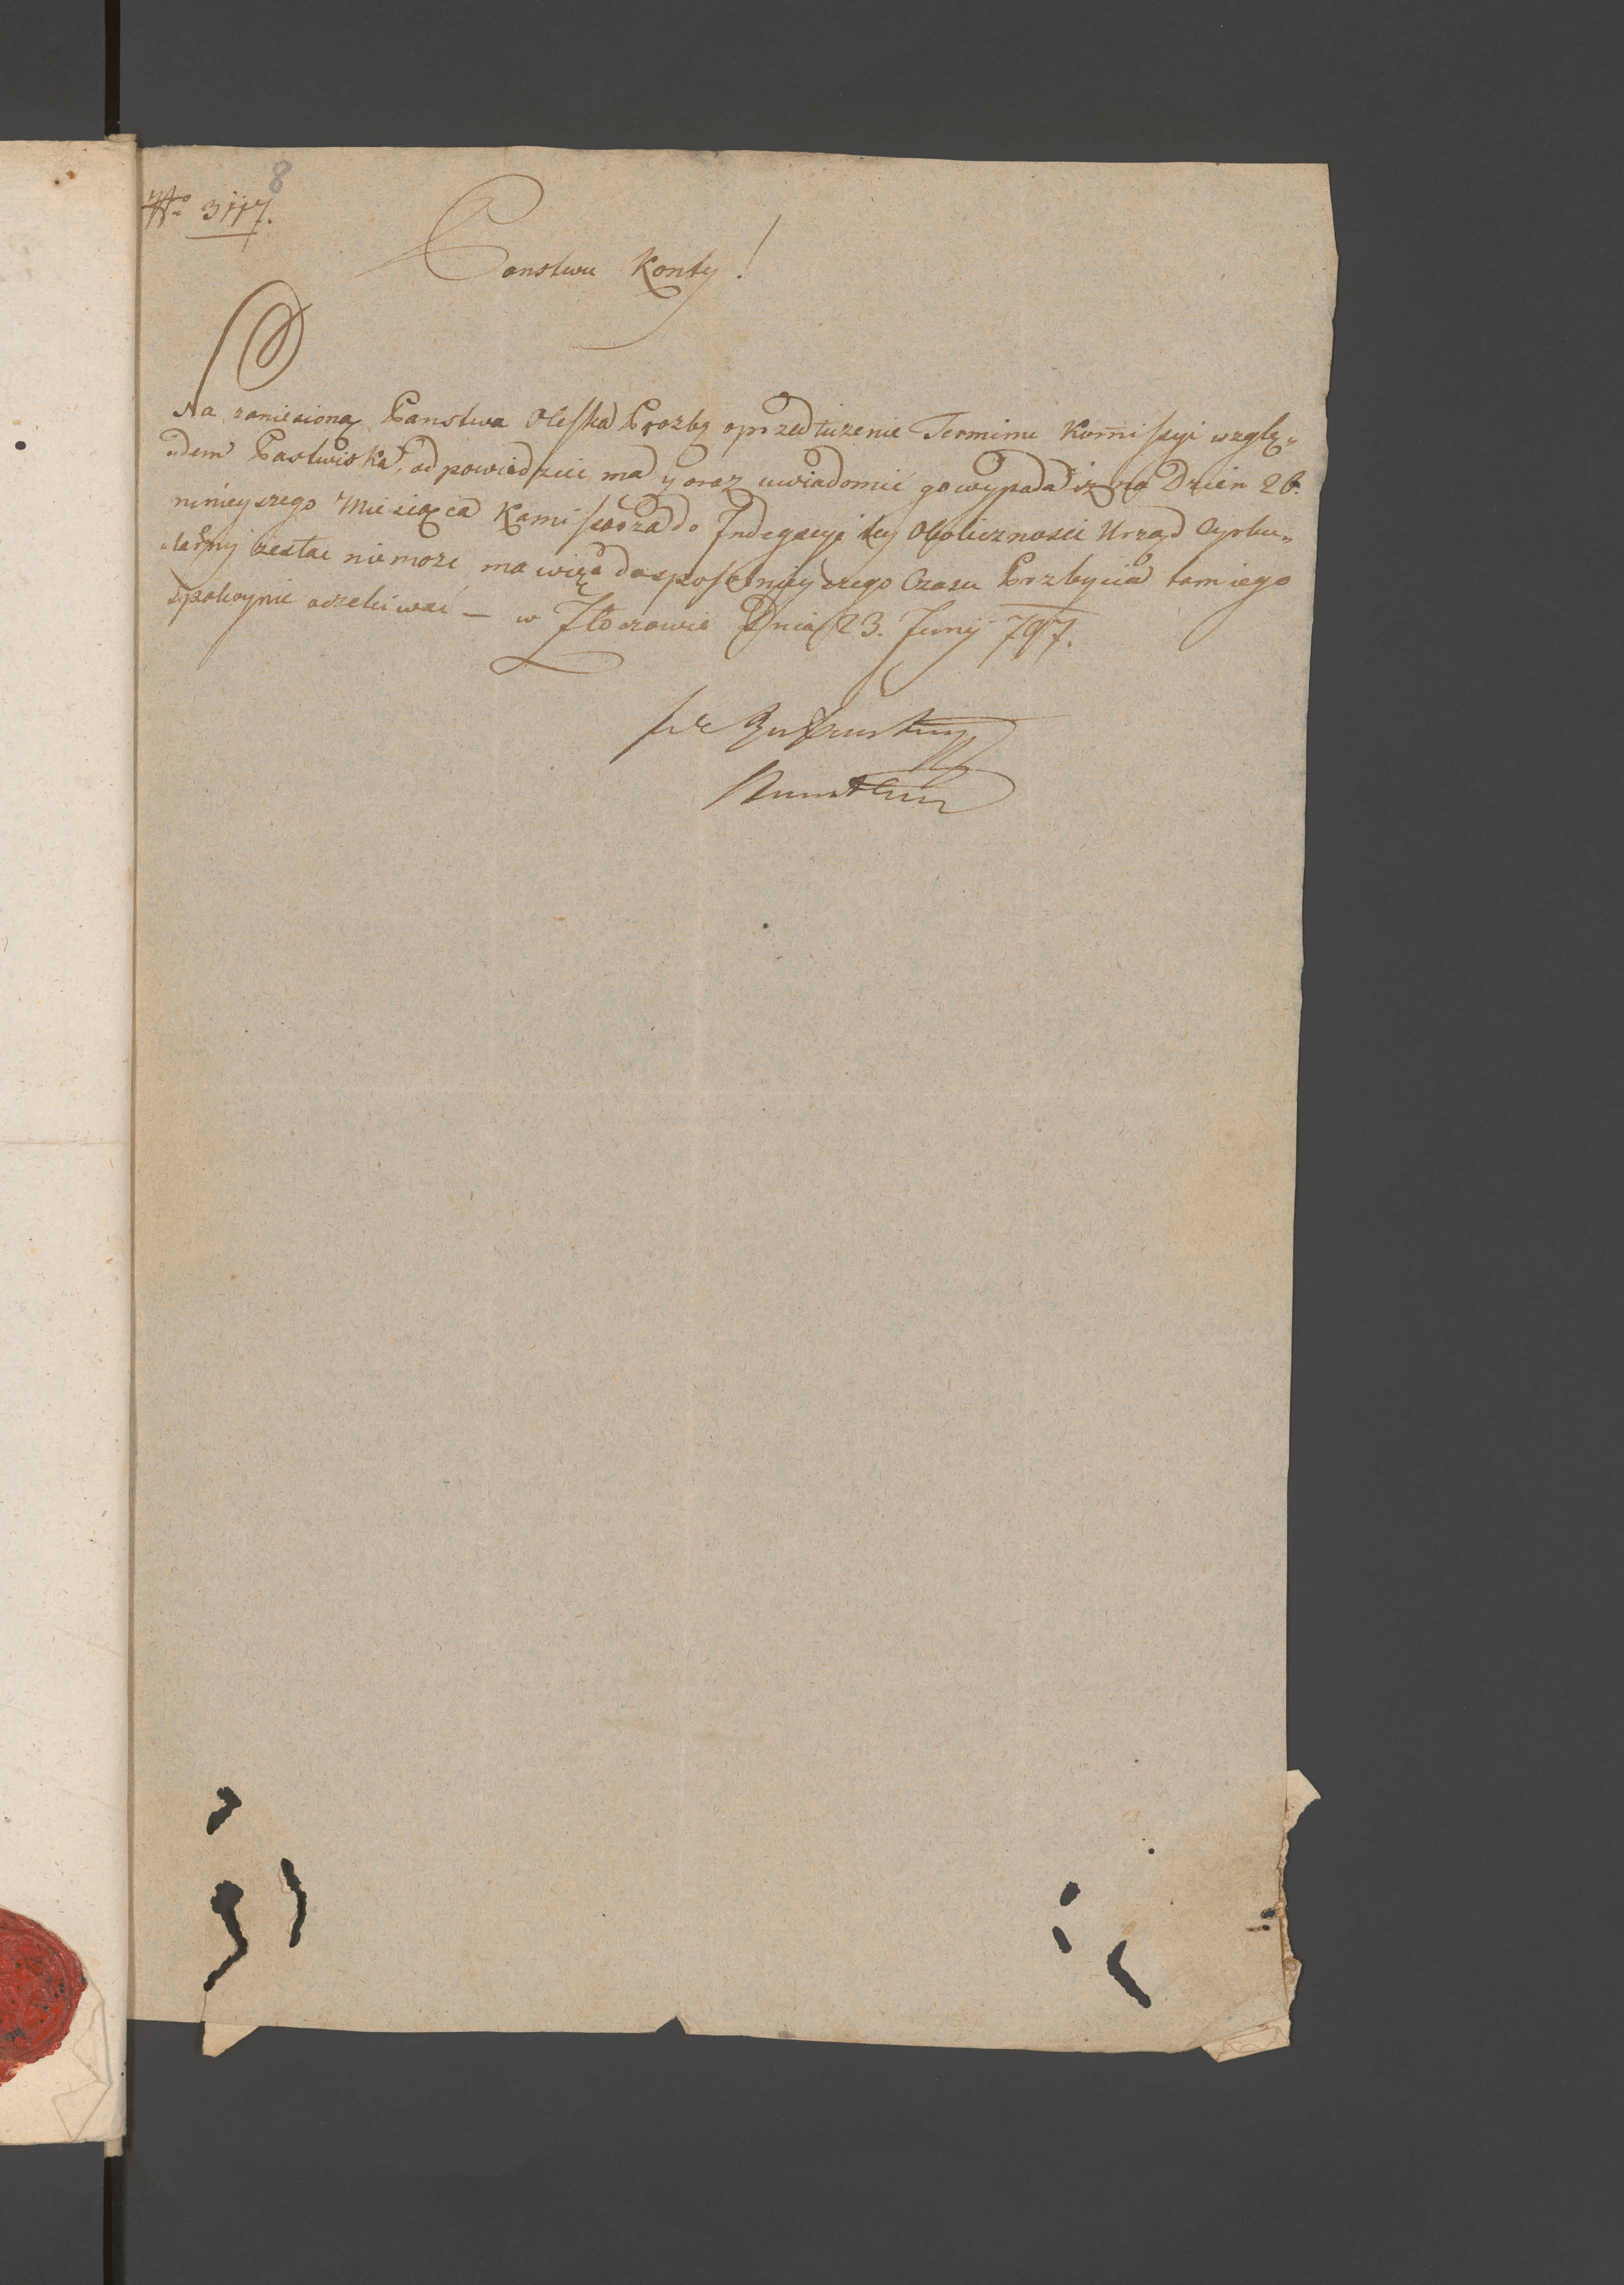 8
No 3117.
Panstwu Konty!
Na zaniesioną Panstwa Oleska Prozbę oprzedłuzenie Terminu Komissyi wzglę„
„dem Pastwiska, odpowiedzieć ma y oraz uwiadomić go wypada iz na Dzien 26.
ninieyszego Miesiąca Kamissarza do Indegacyi tey Okolicznosci Urząd Cyrku„
„larny zesłac niemoze ma więc do sposobnieyszego Czasu Przbycia tamiego
spokoynie oczekiwać — w Złoczowie Dnia 23. Junÿ 797.